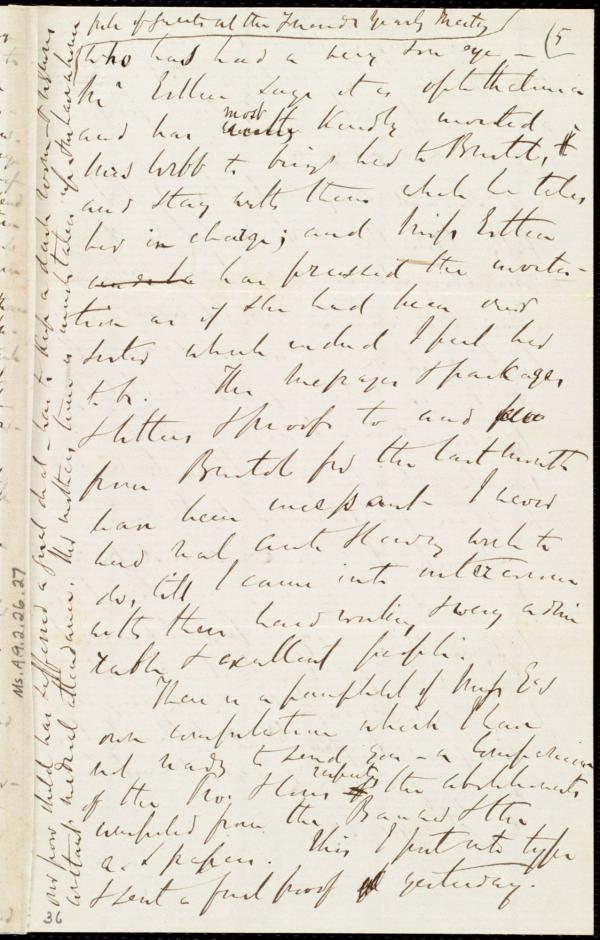 pile of sweets at the Friends Yearly Meeting (5
who has had a very sore eye —
Mr Estlin says it is ophthalmia
and has most kindly invited
Mrs Webb to bring her to Bristol,
and stay with them while he takes
her in charge; and Miss Estlin
has pressed the invita-
tion as if she had been own
sister which indeed I feel her
to be. The messages & packages
& letters & proofs to and
from Bristol for the last month
have been incessant — I never
had such heavy work to
do, till I came into intercourse
with these hard working & very admi
rable & excellent people.
There is a pamphlet of Miss E's
own compilation which I have
not ready to send you — a Comparison
of the Pro Slavery the abolitionists
compiled from the Banner & the
a. s papers. This I put into type
& sent a first proof of yesterday.
our poor child has suffered a good deal — has to keep a dark room — & requires
constant medical attendance. Her mother's time is much taken up
Ms.A.9.2.26.27
36